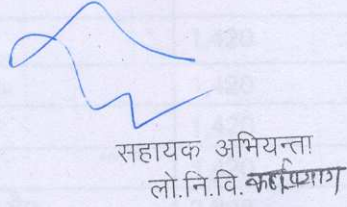 सहायक अभियन्ता
लो.नि.वि. कर्णप्रयाग